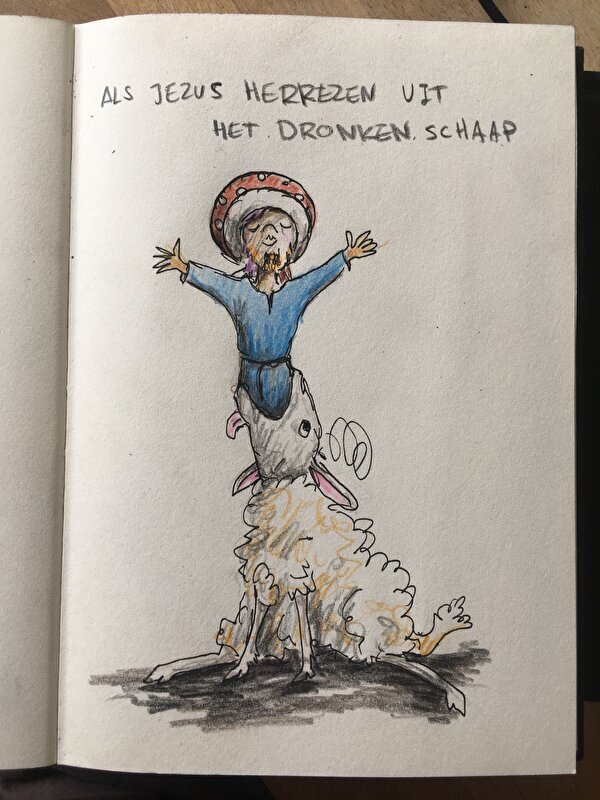 ALS JEZUS HERREZEN UIT
HET. DRONKEN. SCHAAP